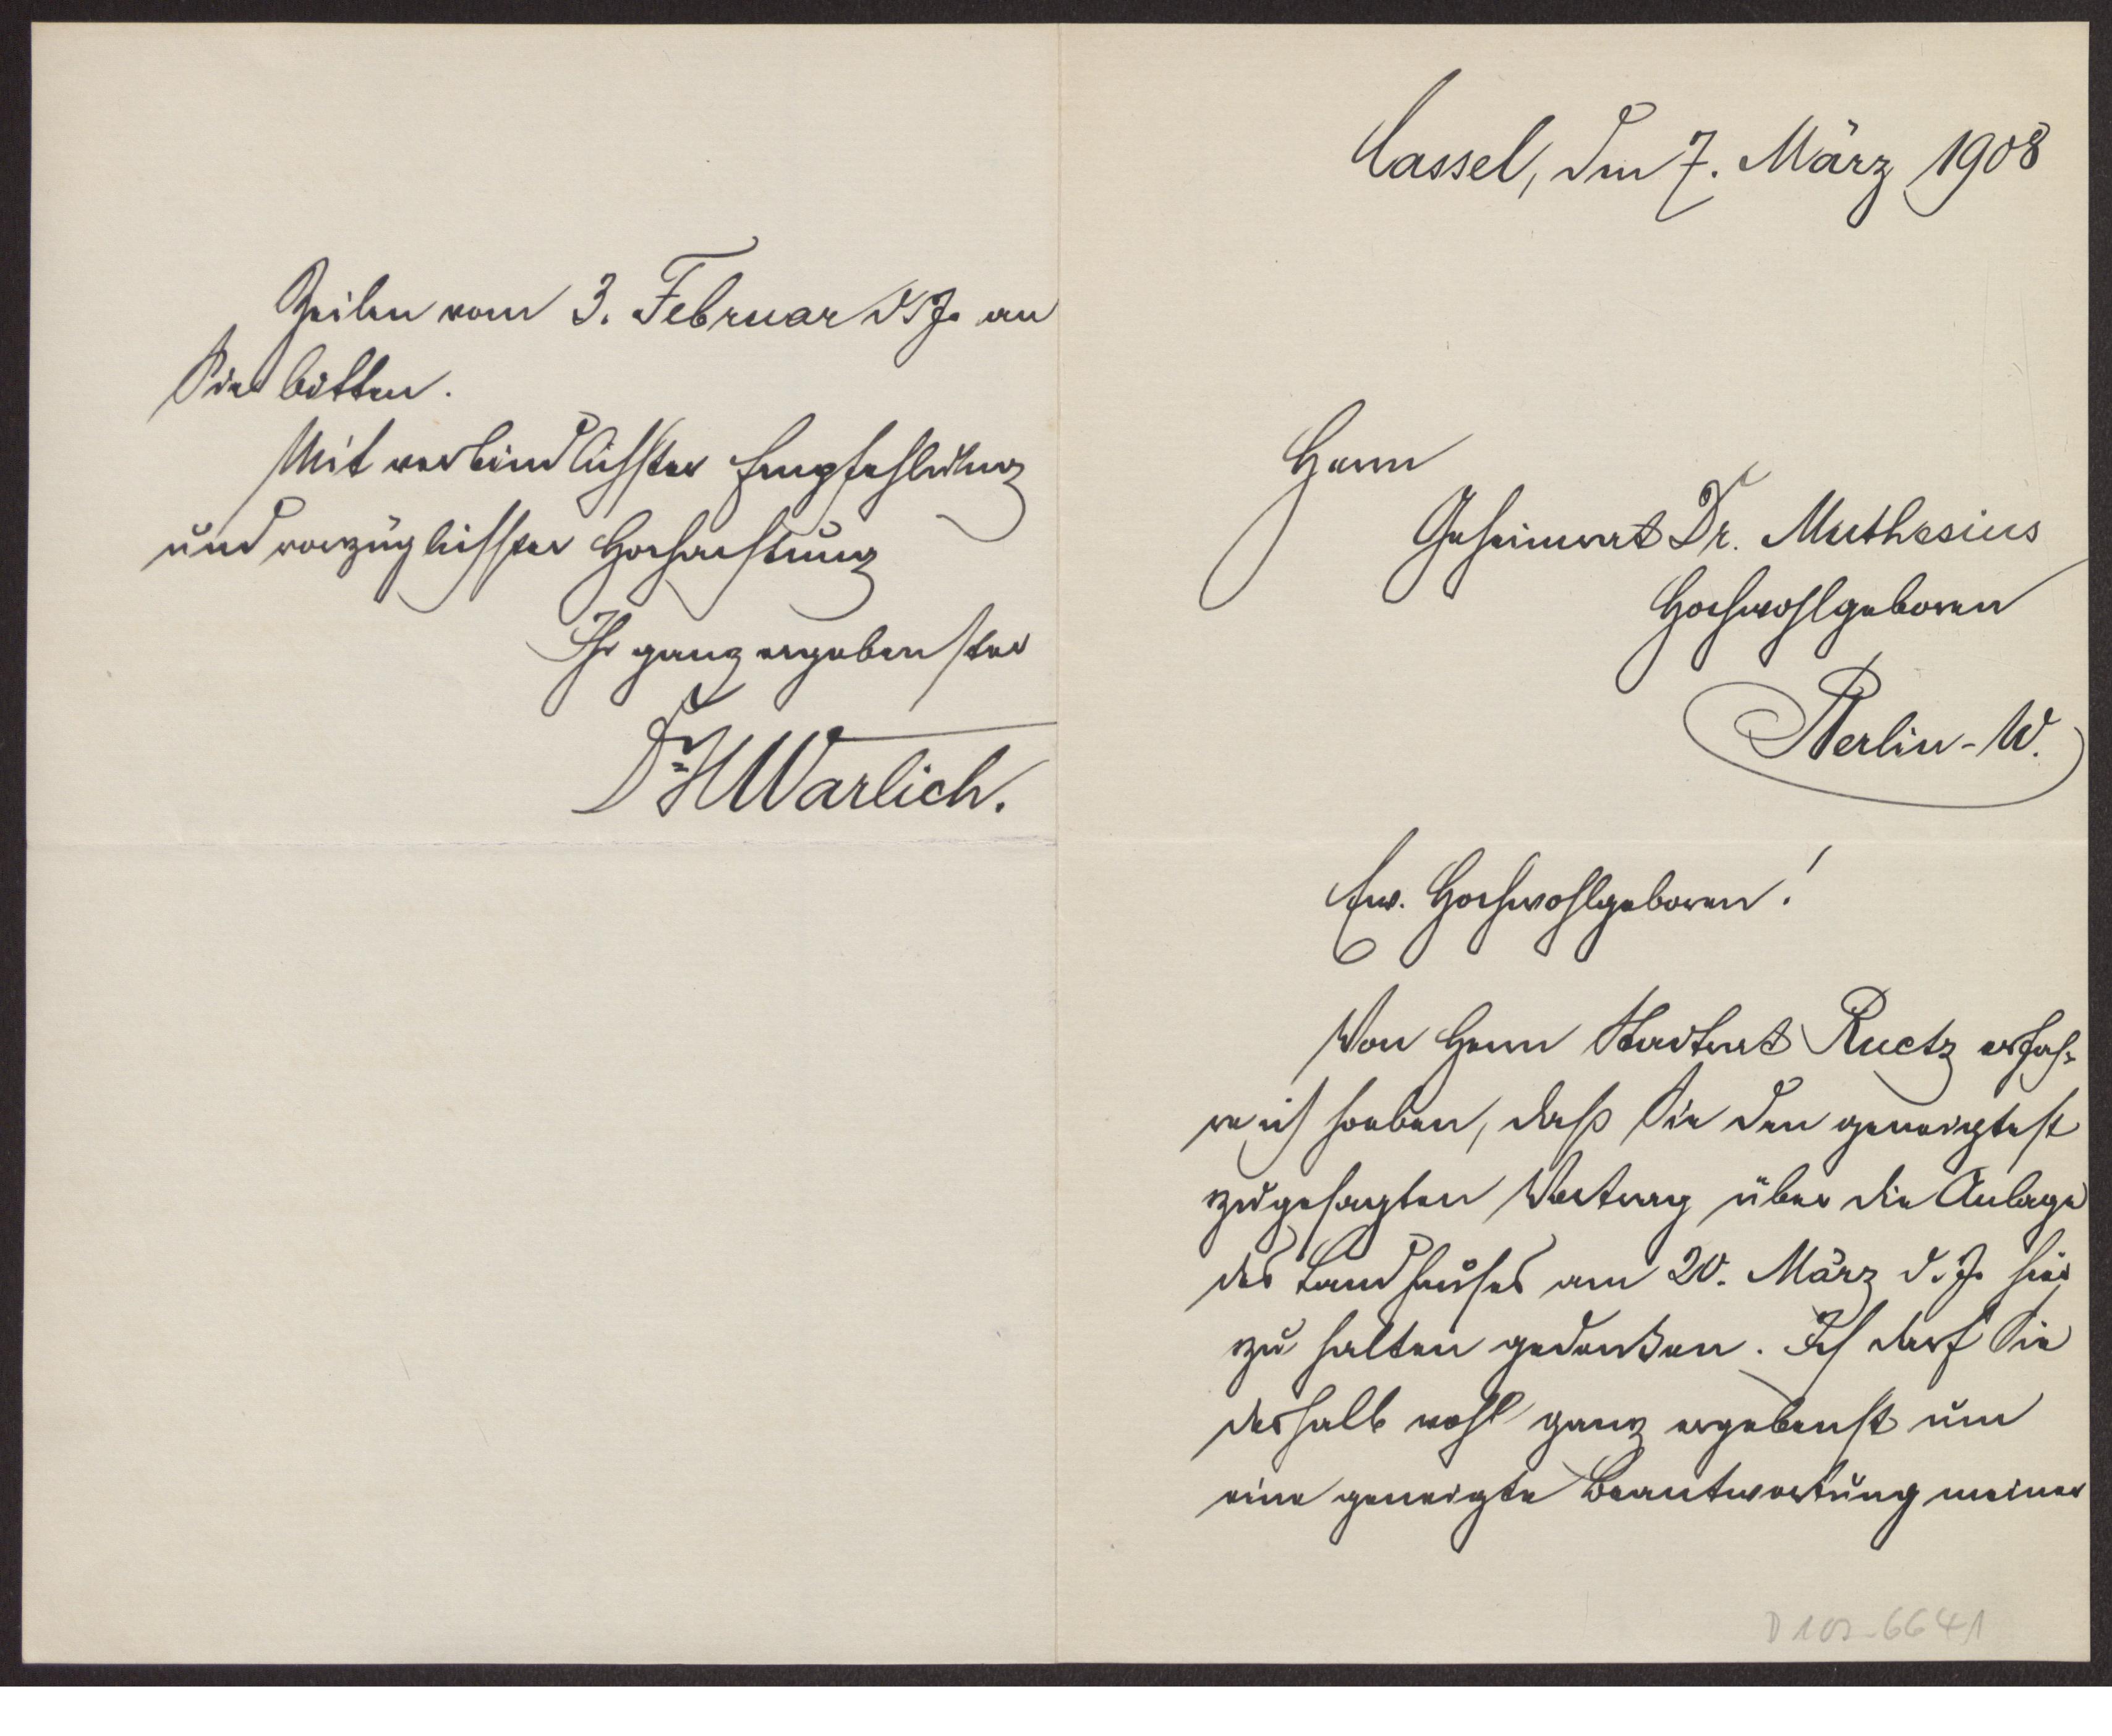 Cassel, den 7. März 1908
Herrn
Geheimrat Dr. Muthesius
Hochwohlgeboren
Berlin-W.
Ew. Hochwohlgeboren!
Von Herrn Stadtrat Ruetz erfah-
re ich soeben, daß Sie den geneigtest
zugesagten Vortrag über die Anlage
des Landhauses am 20. März d. J. hier
zu halten gedenken. Ich darf Sie
deshalb wohl ganz ergebenst um
eine geneigte Beantwortung meiner
D 102-6641
Zeilen vom 3. Februar ds J. an
Sie bitten.
Mit verbindlichster Empfehlung
und vorzüglichster Hochachtung
Ihr ganz ergebenster
Dr. H Warlich.